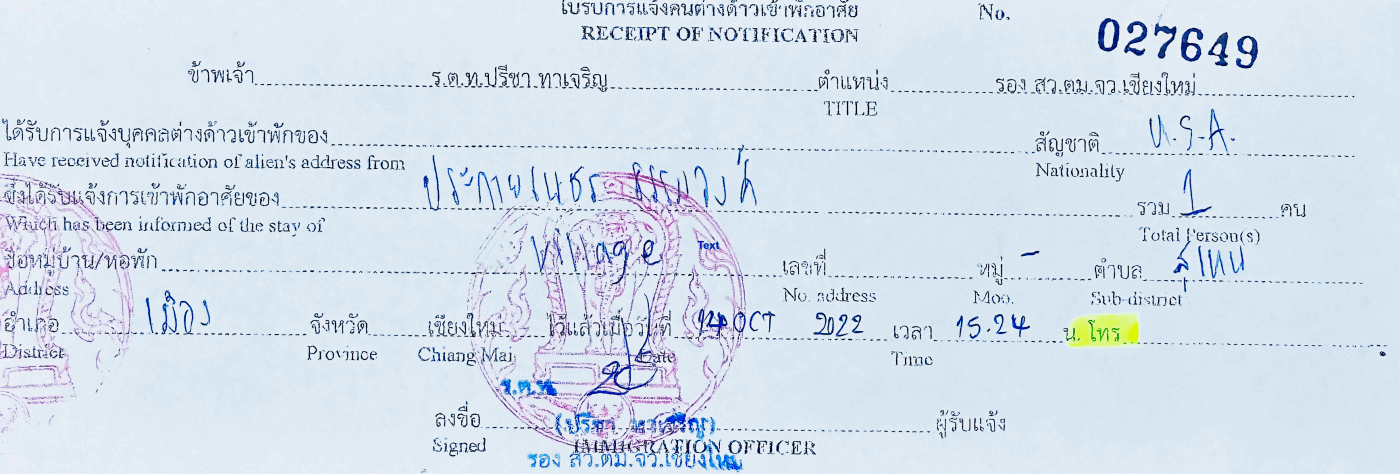 ใบรับการแจ้งคนต่างด้าวเข้าพักอาศัย No. 027649
RECEIPT OF NOTIFICATION
ข้าพเจ้า ร.ต.ท.ปรีชา ทาเจริญ ตำแหน่ง รอง สว.ตม.จว.เชียงใหม่
TITLE
ได้รับการแจ้งบุคคลต่างด้าวเข้าพักของ สัญชาติ U.S.A.
Have received notification of alien's address from Nationality
ซึ่งได้รับแจ้งการเข้าพักอาศัยของ รวม 1 คน
Which has been informed of the stay of Total Person(s)
ชื่อหมู่บ้าน/หอพัก Village Text เลขที่ หมู่ - ตำบล สุเทพ
Address No. address Moo. Sub-district
อำเภอ เมือง จังหวัด เชียงใหม่ ไว้แล้วเมื่อวันที่ 14 OCT 2022 เวลา 15.24 น. โทร
District Province Chiang Mai Date Time
ร.ต.ท.
ลงชื่อ (ปรีชา ทาเจริญ) ผู้รับแจ้ง
Signed IMMIGRATION OFFICER
รอง สว.ตม.จว.เชียงใหม่